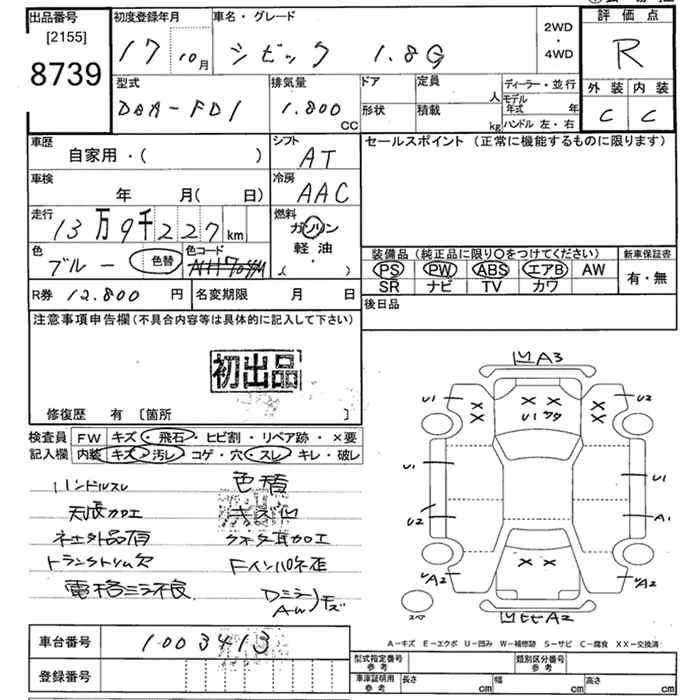 出品番号
[2155]
8739
初度登録年月
17 10月
車名・グレード
シビック 1.8G
2WD
・
4WD
評価点
R
外装 内装
C C
型式
DBA-FD1
排気量
1.800 CC
ドア
形状
定員 人
積載 kg
ディーラー・並行
モデル年式 年
ハンドル 左・右
車歴
自家用・( )
シフト
AT
車検
年 月( 日)
冷房
AAC
走行
13万9千227km
燃料
ガソリン
軽油
( )
色
ブルー 色替
色コード
セールスポイント (正常に機能するものに限ります)
装備品(純正品に限り〇をつけてください)
PS PW ABS エアB AW
SR ナビ TV カワ
新車保証書
有・無
R券 12.800円
名変期限 月 日
後日品
注意事項申告欄(不具合内容等は具体的に記入して下さい)
初出品
修復歴 有 [箇所 ]
検査員
記入欄
FW キズ・飛石・ヒビ割・リペア跡・×要
内装 キズ・汚レ・コゲ・穴・スレ・キレ・破レ
ハンドルスレ
色替
天張加工
ネ土外品有
トランクトリム欠
電格ミラー不良
A3
U1
U2
U1
U1
U2
A1
A2
A2
A2
スペア
A-キズ E-エクボ U-凹み W-補修跡 S-サビ C-腐食 XX-交換済
車台番号
1003413
登録番号
型式指定番号
参考
類別区分番号
参考
車庫証明用
参考
長さ cm
幅 cm
高さ cm